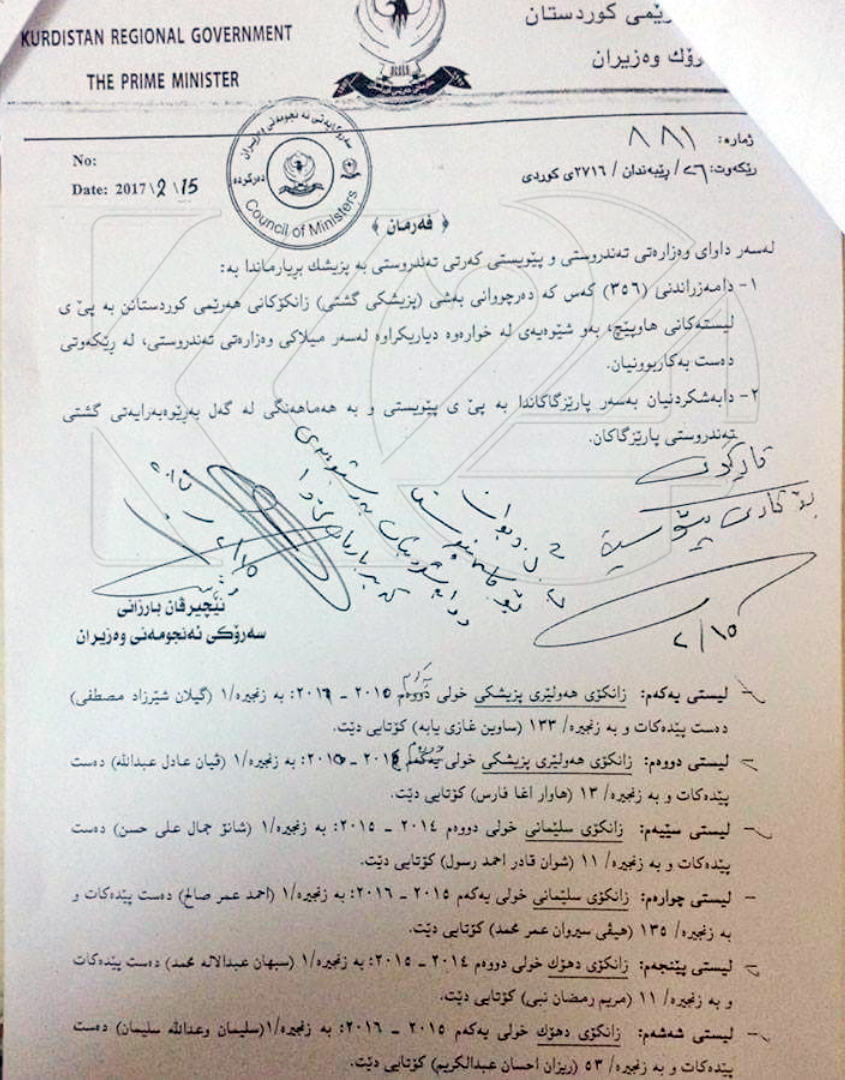 رێمی كوردستان
KURDISTAN REGIONAL GOVERNMENT
رۆك وەزیران
THE PRIME MINISTER
ژمارە: ٨٨١
No:
رێكەوت: ٢٦/ رێبەندان / ٢٧١٦ی كوردی
Date: 2017\2\15
سەرۆكایەتی ئەنجومەنی وەزیران
دەركردە
Council of Ministers
﴿ فەرمان ﴾
لەسەر داوای وەزارەتی تەندروستی و پێویستی كەرتی تەندروستی بە پزیشك بڕیارماندا بە:
١- دامەزراندنی (٣٥٦) كەس كە دەرچووانی بەشی (پزیشكی گشتی) زانكۆكانی هەرێمی كوردستانن بە پێ ی
لیستەكانی هاوپێچ، بەو شێوەیەی لە خوارەوە دیاریكراوە لەسەر میلاكی وەزارەتی تەندروستی، لە ڕێكەوتی
دەست بەكاربوونیان.
٢- دابەشكردنیان بەسەر پارێزگاكاندا بە پێ ی پێویستی و بە هەماهەنگی لە گەل بەڕێوەبەرایەتی گشتی
تەندروستی پارێزگاكان.
٢/١٥
نێچیرڤان بارزانی
سەرۆكی ئەنجومەنی وەزیران
- لیستی یەكەم: زانكۆی هەولێری پزیشكی خولی یەكەم ٢٠١٥ - ٢٠١٦: بە زنجیرە/١ (گیلان شێرزاد مصطفی)
دەست پێدەكات و بە زنجیرە/ ١٣٣ (ساوین غازی یابە) كۆتایی دێت.
- لیستی دووەم: زانكۆی هەولێری پزیشكی خولی دووەم ٢٠١٤ - ٢٠١٥: بە زنجیرە/١ (ڤیان عادل عبدالله) دەست
پێدەكات و بە زنجیرە/ ١٣ (هاوار اغا فارس) كۆتایی دێت.
- لیستی سێیەم: زانكۆی سلێمانی خولی دووەم ٢٠١٤ - ٢٠١٥: بە زنجیرە/١ (شانۆ جمال علی حسن) دەست
پێدەكات و بە زنجیرە/ ١١ (شوان قادر احمد رسول) كۆتایی دێت.
- لیستی چوارەم: زانكۆی سلێمانی خولی یەكەم ٢٠١٥ - ٢٠١٦: بە زنجیرە/١ (احمد عمر صالح) دەست پێدەكات و
بە زنجیرە/ ١٣٥ (هیڤی سیروان عمر محمد) كۆتایی دێت.
- لیستی پێنجەم: زانكۆی دهۆك خولی دووەم ٢٠١٤ - ٢٠١٥: بە زنجیرە/١ (سبهان عبدالالە محمد) دەست پێدەكات
و بە زنجیرە/ ١١ (مریم رمضان نبی) كۆتایی دێت.
- لیستی شەشەم: زانكۆی دهۆك خولی یەكەم ٢٠١٥ - ٢٠١٦: بە زنجیرە/١(سلیمان وعدالله سلیمان) دەست
پێدەكات و بە زنجیرە/ ٥٣ (ریزان احسان عبدالكریم) كۆتایی دێت.